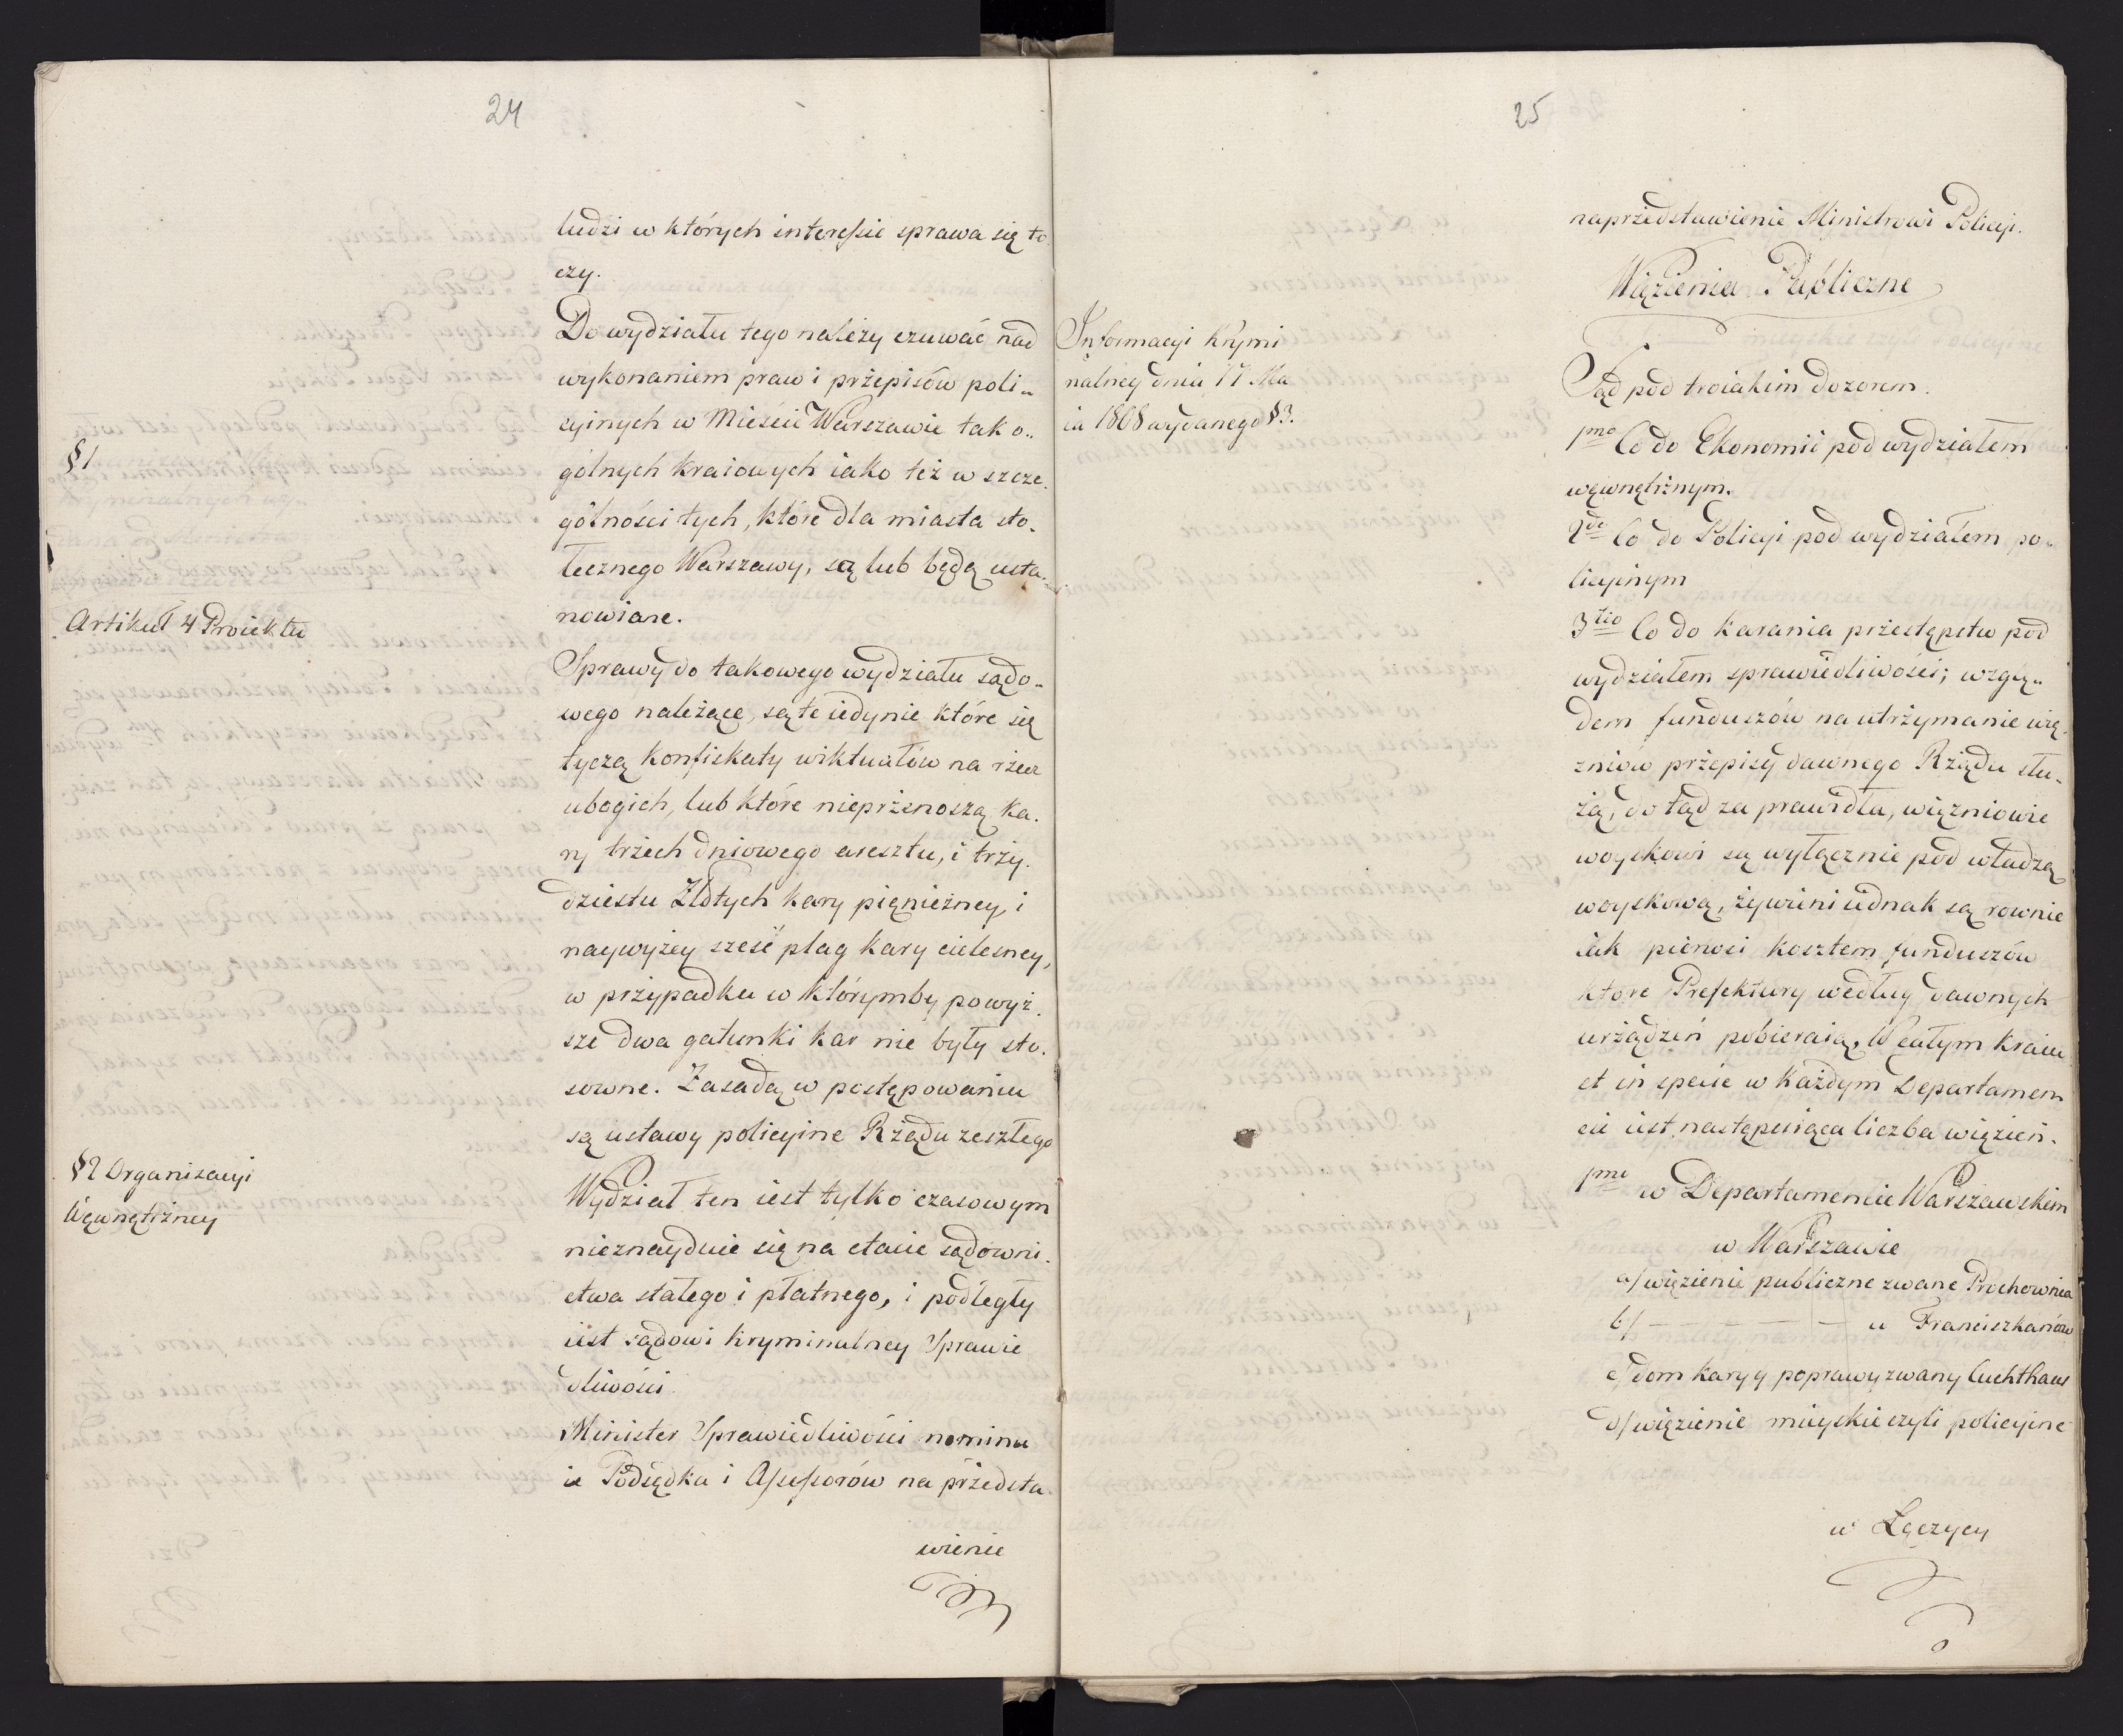 24
ludzi w których interessie sprawa się to
czy.
Do wydziału tego należy czuwać nad
wykonaniem praw i przepisów poli„
cyinych w Mieście Warszawie tak o„
§1
gólnych kraiowych iako też w szcze„
gólności tych, które dla miasta sto„
łecznego Warszawy, są lub będą usta„
nowione.
Artikuł 4 Proiektu
Sprawy do takowego wydziału sądo„
wego należące, są te iedynie które się
tyczą konfiskaty wiktuałów na rzecz
ubogich, lub które nieprzenoszą ka„
ry trzech dniowego aresztu, i trzy„
dziestu Złotych kary pięniężney, i
naywyżey sześć plag kary cielesney,
w przypadku w którymby powyż„
sze dwa gatunki kar nie były sto„
sowne. Zasadą w postępowaniu
są ustawy policyine Rządu zeszłego
§2 Organizacyi
Wewnętrzney
Wydział ten iest tylko czasowym
nieznayduie się na etacie sądowni„
ctwa stałego i płatnego, i podległy
iest sądowi kryminalney Sprawie
dliwości
Minister Sprawiedliwości nominu
ie Podsędka i Assessorów na przedsta„
wienie
25
naprzedstawienie Ministrowi Policyi.
Więzienia Publiczne
Informacyi Krymi
nalney dnia 17 Ma
ia 1808 wydanego §3.
Są pod troiakim dozorem.
1mo Co do Ekonomii pod wydziałem
wewnętrznym.
2do Co do Policyi pod wydziałem po„
licyinym
3tio Co do karania przestępstw pod
wydziałem sprawiedliwości; wzglę„
dem funduszów na utrzymanie wię„
zniów przepisy dawnego Rządu słu„
żą, dotąd za prawidła, więzniowie
woyskowi są wyłącznie pod władzą
woyskową, żywieni iednak są rownie
iak pienosi kosztem funduszów
które Prefektury według dawnych
urządzeń pobieraią, W całym kraiu
et in specie w każdym Departamen
cie iest następuiąca liczba więzień.
1mo w Departamencie Warszawskim
w Warszawie
a/ więzienie publiczne zwane Prochownia
b/ — — — — — u Franciszkanów
c/ dom kary y poprawy zwany Cuchthaus
d/ więzienie mieyskie czyli policyine
w Łęczycy